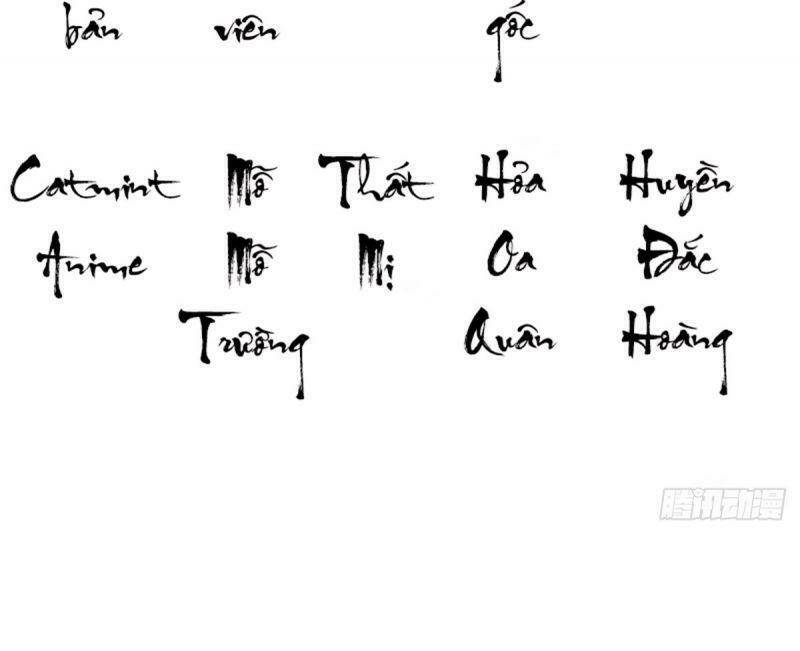 bản viên gốc
Catmint Mỗ Thất Hỏa Huyền
Anime Mỗ Mị Oa Đắc
Trường Quân Hoàng
腾讯动漫